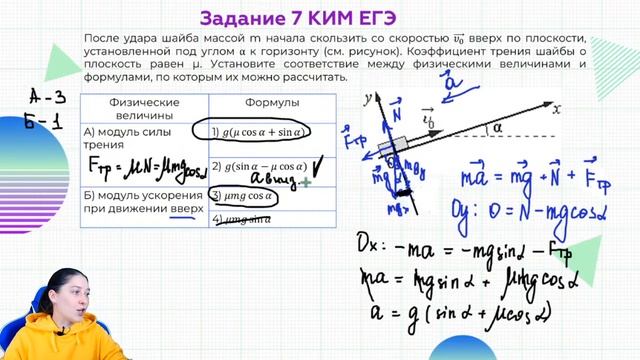 Задание 7 КИМ ЕГЭ
После удара шайба массой m начала скользить со скоростью v₀ вверх по плоскости,
установленной под углом α к горизонту (см. рисунок). Коэффициент трения шайбы о
плоскость равен μ. Установите соответствие между физическими величинами и
формулами, по которым их можно рассчитать.
А-3
Б-1
Физические величины
Формулы
А) модуль силы трения
Fтр = μN = μmg cosα
1) g(μ cos α + sin α)
2) g(sin α − μ cos α)
а вниз.
Б) модуль ускорения при движении вверх
3) μmg cos α
4) μmg sin α
y
N
a
v₀
x
α
Fтр
mg
mgy
mgx
ma = mg + N + Fтр
Oy: 0 = N − mg cosα
Ox: −ma = −mg sinα − Fтр
ma = mg sinα + μmg cosα
a = g (sinα + μcosα)